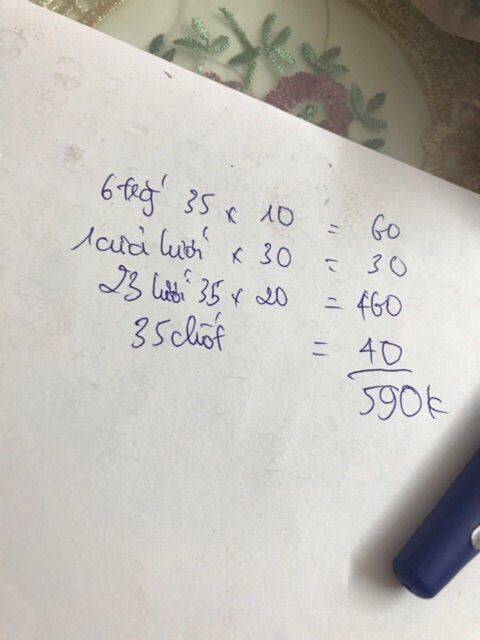 6 35 x 10 = 60
1 cưa lưới x 30 = 30
23 lưới 35 x 20 = 460
35 chốt = 40
590k